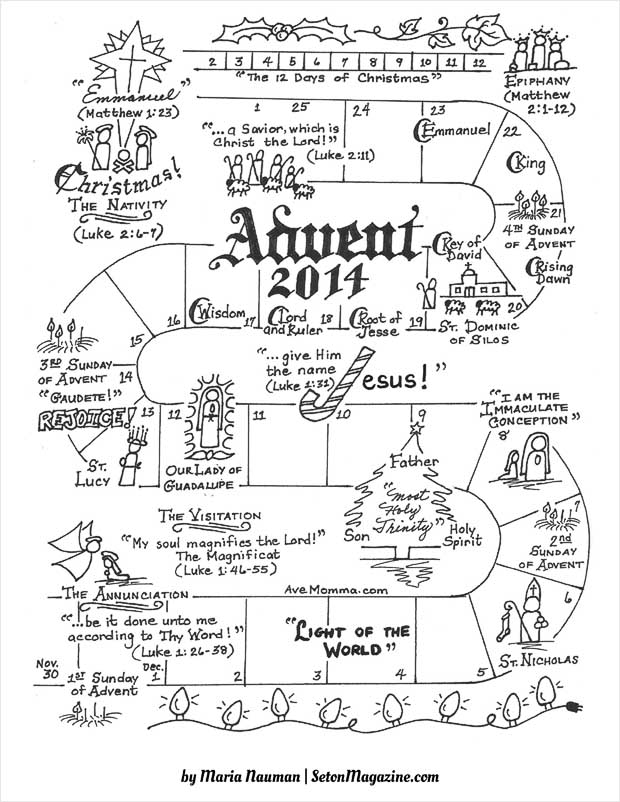 2 3 4 5 6 7 8 9 10 11 12
"The 12 Days of Christmas"
EPIPHANY
(Matthew
2:1-12)
"Emmanuel"
(Matthew 1:23)
Christmas!
THE NATIVITY
(Luke 2:6-7)
1 25 24 23 22
"...a Savior, which is
Christ the Lord!"
(Luke 2:11)
O Emmanuel
O King
21
4TH SUNDAY
OF ADVENT
O Rising
Dawn
Advent
2014
O Key of
David
20
ST. DOMINIC
OF SILOS
O Wisdom
O Lord
and Ruler
O Root of
Jesse
16 17 18 19
15
3RD SUNDAY
OF ADVENT
"GAUDETE!"
REJOICE!
14
13
ST.
LUCY
"...give Him
the name
(Luke 1:31)
Jesus!"
12 11 10 9
OUR LADY OF
GUADALUPE
"I AM THE
IMMACULATE
CONCEPTION"
8
Father
"Most
Holy
Trinity"
Son
Holy
Spirit
7
2nd
SUNDAY
OF ADVENT
6
ST. NICHOLAS
THE VISITATION
"My soul magnifies the Lord!"
The Magnificat
(Luke 1:46-55)
THE ANNUNCIATION
AveMomma.com
"...be it done unto me
according to Thy Word!"
(Luke 1:26-38)
"LIGHT OF THE
WORLD"
Nov.
30
1ST Sunday
of Advent
Dec.
1 2 3 4 5
by Maria Nauman | SetonMagazine.com